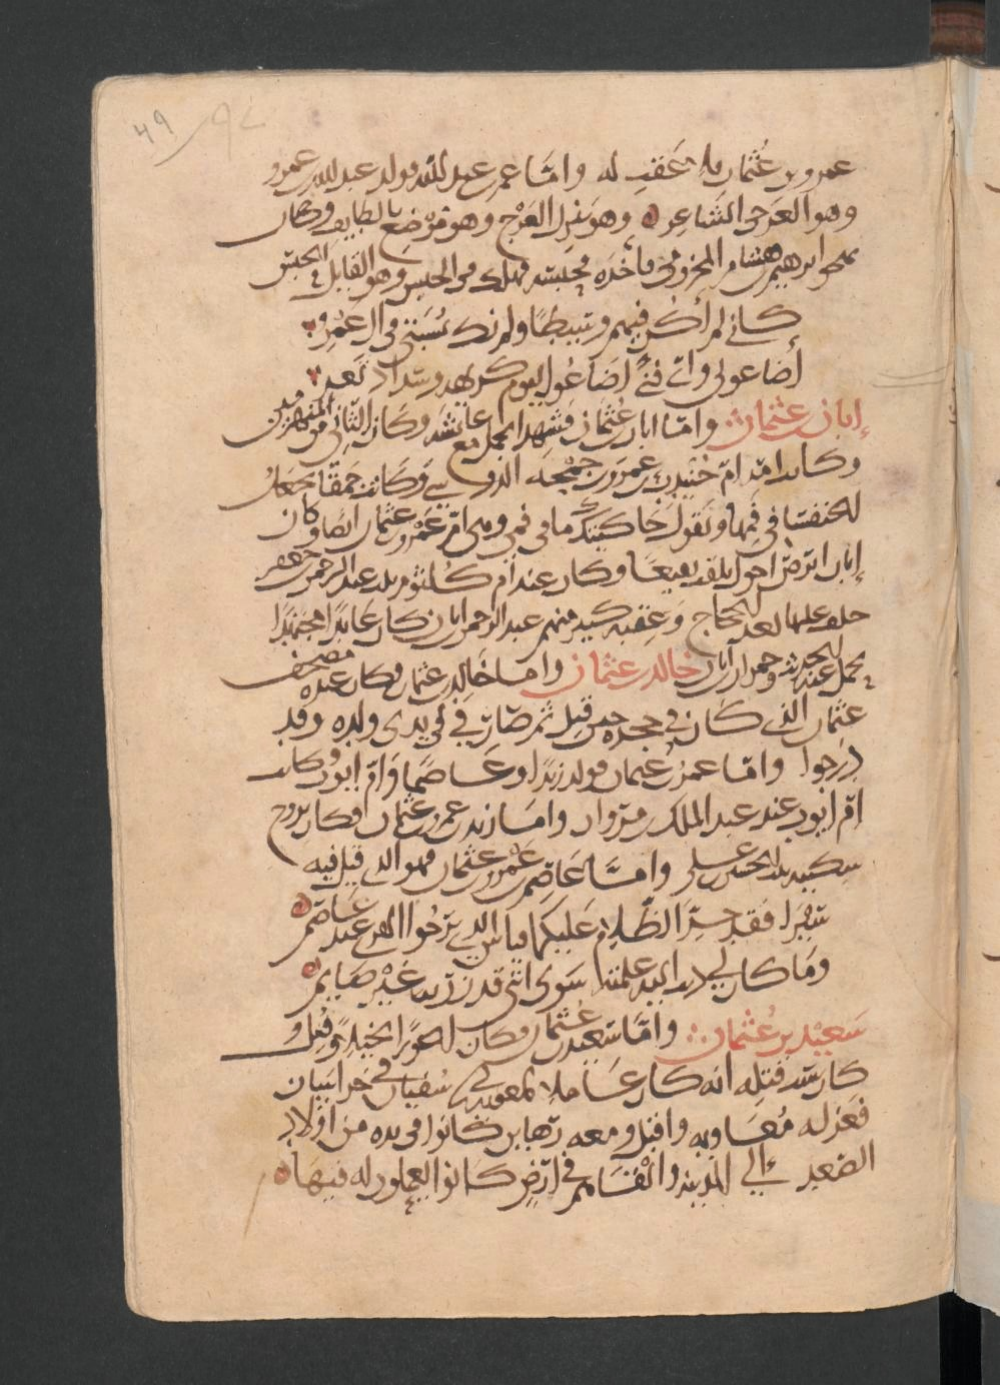 عمرو بن عُثمان فلا عَقِب له وامّا عمر بن عبد الله فولد عبد الله بن عمرو
وهو العَرجى الشّاعر وهو ينزل العَرْج وهو مَوْضع بالطايف وكان
ابرهيم بن هشام المخزومى فاخذه فحبسه فهلك فى الحبس وهو القايل فى الحبس
كانى لم اكن فيهم وسيطًا ولم تك نسبتى فى ال عمرو
أضاعونى واىّ فتىً اضاعوا ليوم كريهة وسداد ثغر
إبان بن عثمان وامّا ابان بن عُثمان فشهد الجمل مع عايشة وكان الثانى من المنهزمين
وكانت امّه امّ بنت جندب بن عمرو بن حممة الدوسى وكانت حمقا تجعل
الخنفسا فى فمها وتقول حاجيتك ما فى فمى وهى امّ عَمْرو بن عثمان ايضا وكان
إبان ابرص احول يلقب بقيعًا وكان عنده ام كلثوم بنت عبد الله بن جعفر
خلف عليها بعد الحجاج وعقبه كثير منهم عبد الرحمن بن ابان كان عابدًا مجتهدا
يحمل عنه الحديث خالد بن عثمان وامّا خالد بن عثمان فكان عنده مصحف
عثمان الذى كان فى حجره حين قتل ثم صار فى ايدى ولده وقد
درجوا وامّا عمر بن عثمان فولد زيدًا وعاصمًا وامّ ايوب وكانت
امّ ايوب عند عبد الملك بن مروان وامّا زيد بن عمر بن عثمان فكان تزوج
سكينة بنت الحسين بن على وامّا عاصم بن عمر بن عثمان فهو الذى قيل فيه
سيرا فقد جنّ الظّلام عليكما فياس الذى يرجوا القرى عند عاصم
وما كان لى ذنب اليه علمته سوى اننى قد زرته غير صايم
سعيد بن عُثمان وامّا سعيد بن عثمان فكان اعور بخيلا وقتل و
كان سبب قتله انه كان عاملا لمعوية بن ابى سفيان على خراسان
فعزله مُعاوية واقبل ومعه رهاين كانوا فى يده من اولاد
الصغد الى المدينة والقاهم فى ارض كانوا يعملون له فيها